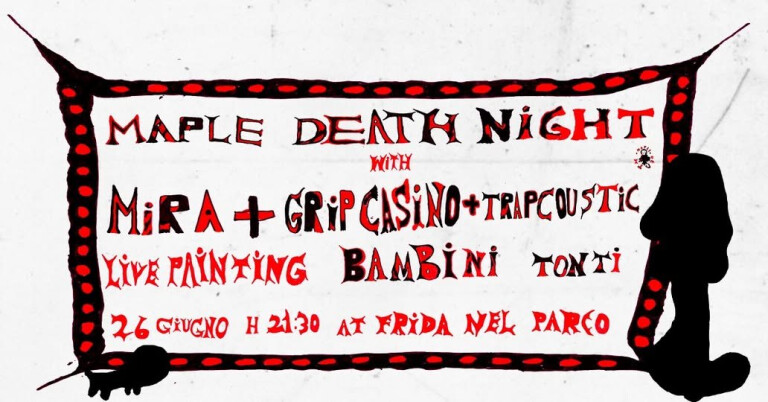 MAPLE DEATH NiGHT
WiTH
MiRA + GRiP CASiNO + TRAPCOUSTiC
LiVE PAiNTiNG BAMBiNi TONTi
26 GiUGNO H 21:30 AT FRiDA NEL PARCO